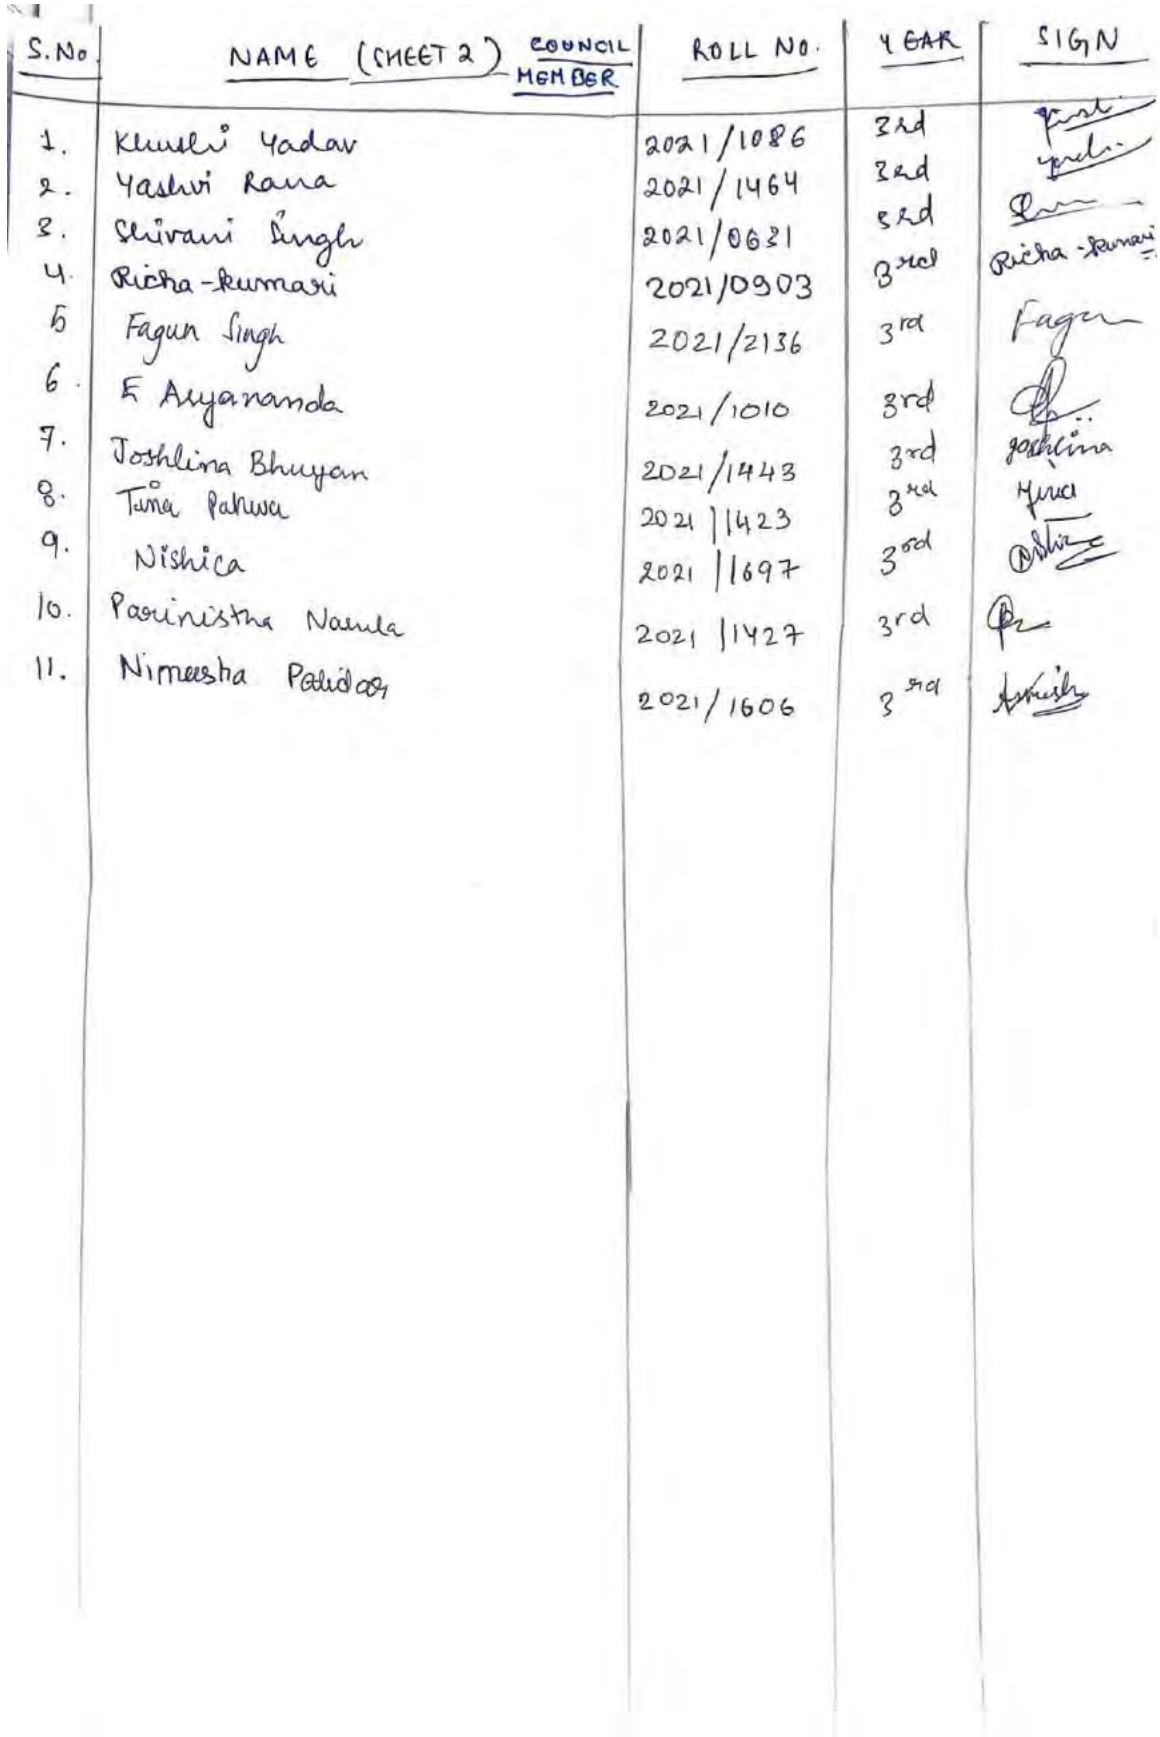 S.No. NAME (SHEET 2) COUNCIL MEMBER ROLL NO. YEAR SIGN
1. Khushi Yadav 2021/1086 3rd
2. Yashvi Rana 2021/1464 3rd
3. Shivani Singh 2021/0631 3rd
4. Richa-kumari 2021/0903 3rd Richa-kumari
5 Fagun Singh 2021/2136 3rd Fagun
6. E Aryananda 2021/1010 3rd
7. Joshlina Bhuyan 2021/1443 3rd Joshlina
8. Tina Pahwa 2021/1423 3rd
9. Nishica 2021/1697 3rd
10. Parinistha Narula 2021/1427 3rd
11. Nimeesha Patidar 2021/1606 3rd